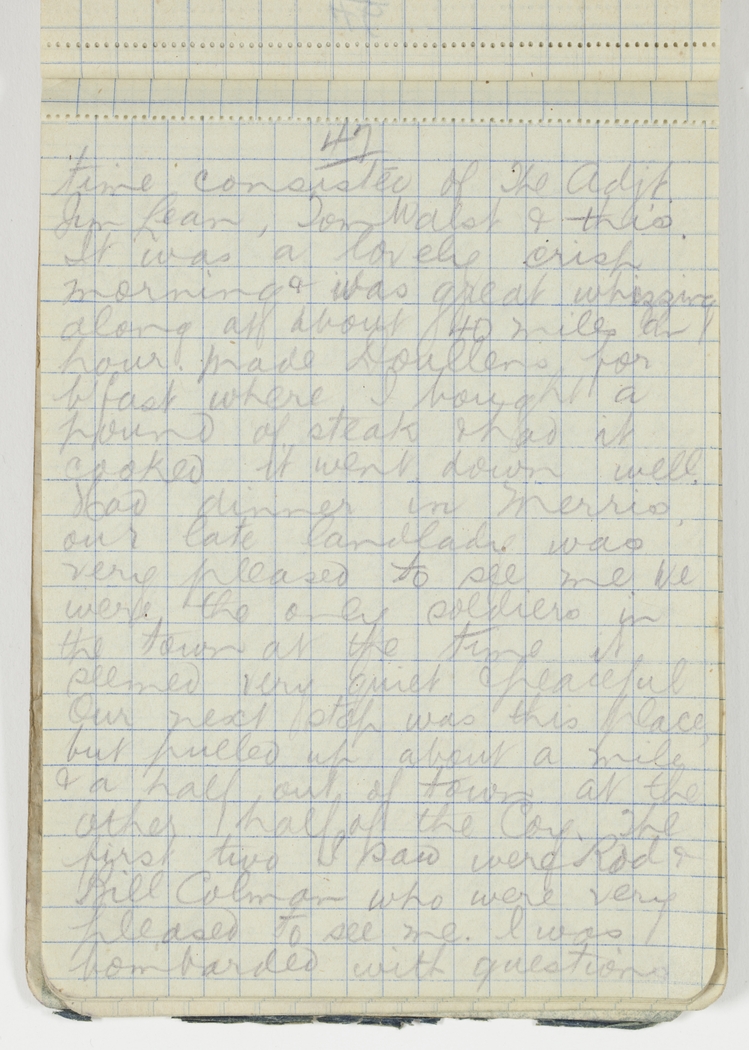 47
time consisted of the Adjt
Jim Lean, Tom Walst & this.
It was a lovely crisp
morning & was great whizzing
along at about 40 miles an
hour. made Doullens for
b'fast where I bought a
pound of steak & had it
cooked it went down well.
Had dinner in Merris,
our late landlady was
very pleased to see me We
were the only soldiers in
the town at the time it
seemed very quiet & peaceful
Our next stop was this place,
but pulled up about a mile
& a half out of town at the
other half of the Coy. The
first two I saw were Rod &
Bill Colman who were very
pleased to see me. I was
bombarded with questions